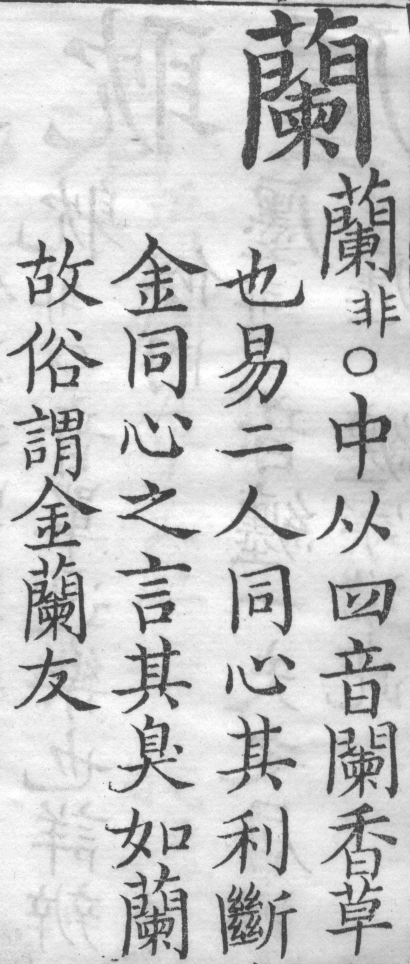 蘭
蘭非○中从四音闌香草
也易二人同心其利斷
金同心之言其臭如蘭
故俗謂金蘭友